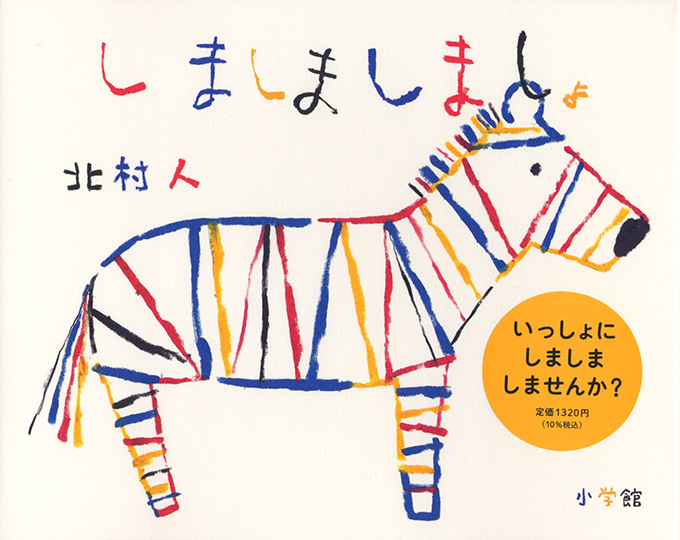 しましましましょ
北村人
いっしょに
しましま
しませんか？
定価1320円
（10％税込）
小学館